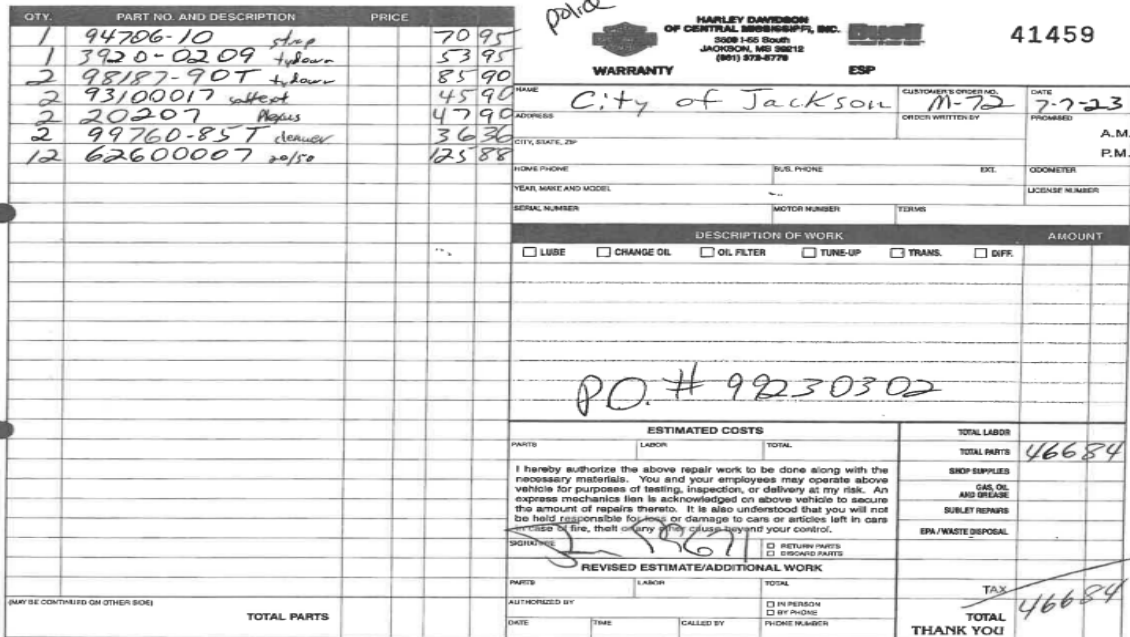 QTY. PART NO. AND DESCRIPTION PRICE
1 94706-10 strap 70 95
1 3920-0209 tydown 53 95
2 98187-90T tydown 85 90
2 93100017 45 90
2 20207 Plexus 47 90
2 99760-85T cleaner 36 36
12 62600007 20/50 125 88
(MAY BE CONTINUED ON OTHER SIDE)
TOTAL PARTS
police
HARLEY DAVIDSON
OF CENTRAL MISSISSIPPI, INC.
3509 I-55 South
JACKSON, MS 39212
(601) 372-5770
Buell
41459
WARRANTY ESP
NAME City of Jackson CUSTOMER'S ORDER NO. M-72 DATE 7-7-23
ADDRESS ORDER WRITTEN BY PROMISED
A.M.
CITY, STATE, ZIP
P.M.
HOME PHONE BUS. PHONE EXT. ODOMETER
YEAR, MAKE AND MODEL LICENSE NUMBER
SERIAL NUMBER MOTOR NUMBER TERMS
DESCRIPTION OF WORK AMOUNT
LUBE CHANGE OIL OIL FILTER TUNE-UP TRANS. DIFF.
P.O. # 99230302
ESTIMATED COSTS
PARTS LABOR TOTAL
I hereby authorize the above repair work to be done along with the
necessary materials. You and your employees may operate above
vehicle for purposes of testing, inspection, or delivery at my risk. An
express mechanics lien is acknowledged on above vehicle to secure
the amount of repairs thereto. It is also understood that you will not
be held responsible for loss or damage to cars or articles left in cars
in case of fire, theft or any other cause beyond your control.
SIGNATURE
RETURN PARTS
DISCARD PARTS
REVISED ESTIMATE/ADDITIONAL WORK
PARTS LABOR TOTAL
AUTHORIZED BY
IN PERSON
BY PHONE
DATE TIME CALLED BY PHONE NUMBER
TOTAL LABOR
TOTAL PARTS 466 84
SHOP SUPPLIES
GAS, OIL
AND GREASE
SUBLET REPAIRS
EPA/WASTE DISPOSAL
TAX
TOTAL 466 84
THANK YOU